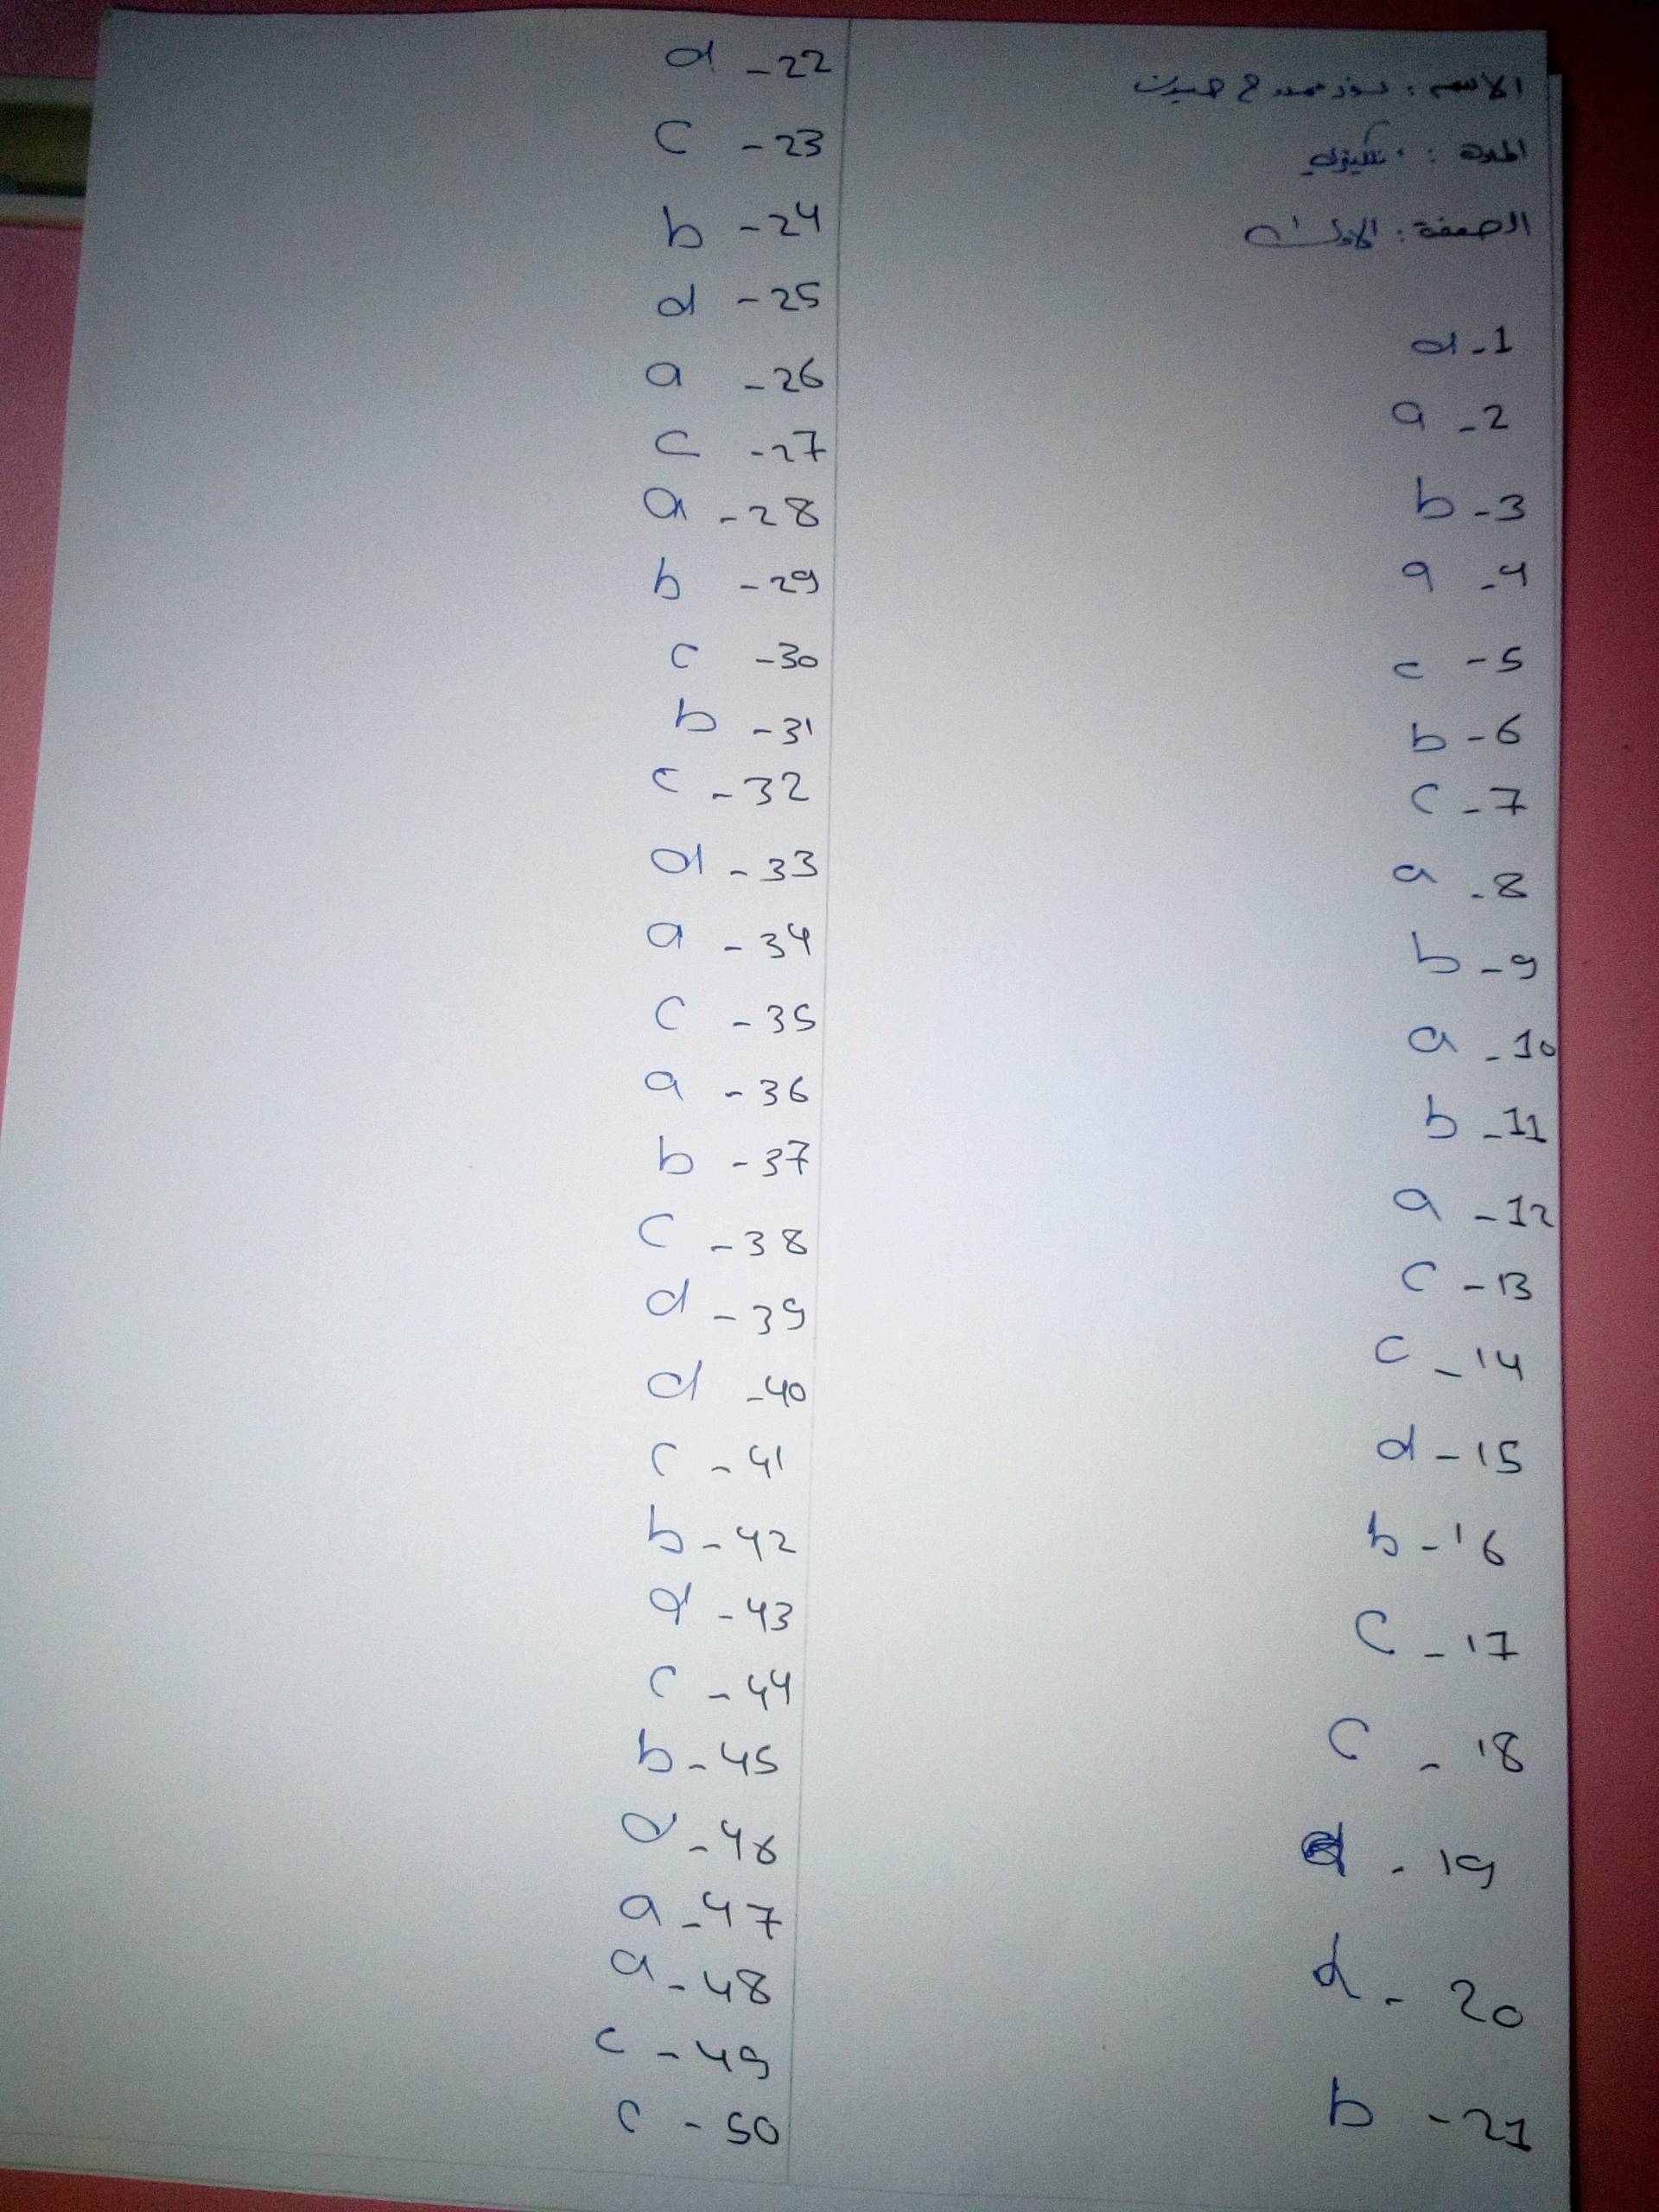 الاسم :
المادة : انكليزي
الصفحة : الاولى
d -1
a -2
b -3
a -4
c -5
b -6
c -7
a -8
b -9
a -10
b -11
a -12
c -13
c -14
d -15
b -16
c -17
c -18
d -19
d -20
b -21
d -22
c -23
b -24
d -25
a -26
c -27
a -28
b -29
c -30
b -31
c -32
d -33
a -34
c -35
a -36
b -37
c -38
d -39
d -40
c -41
b -42
d -43
c -44
b -45
-46
a -47
a -48
c -49
c -50